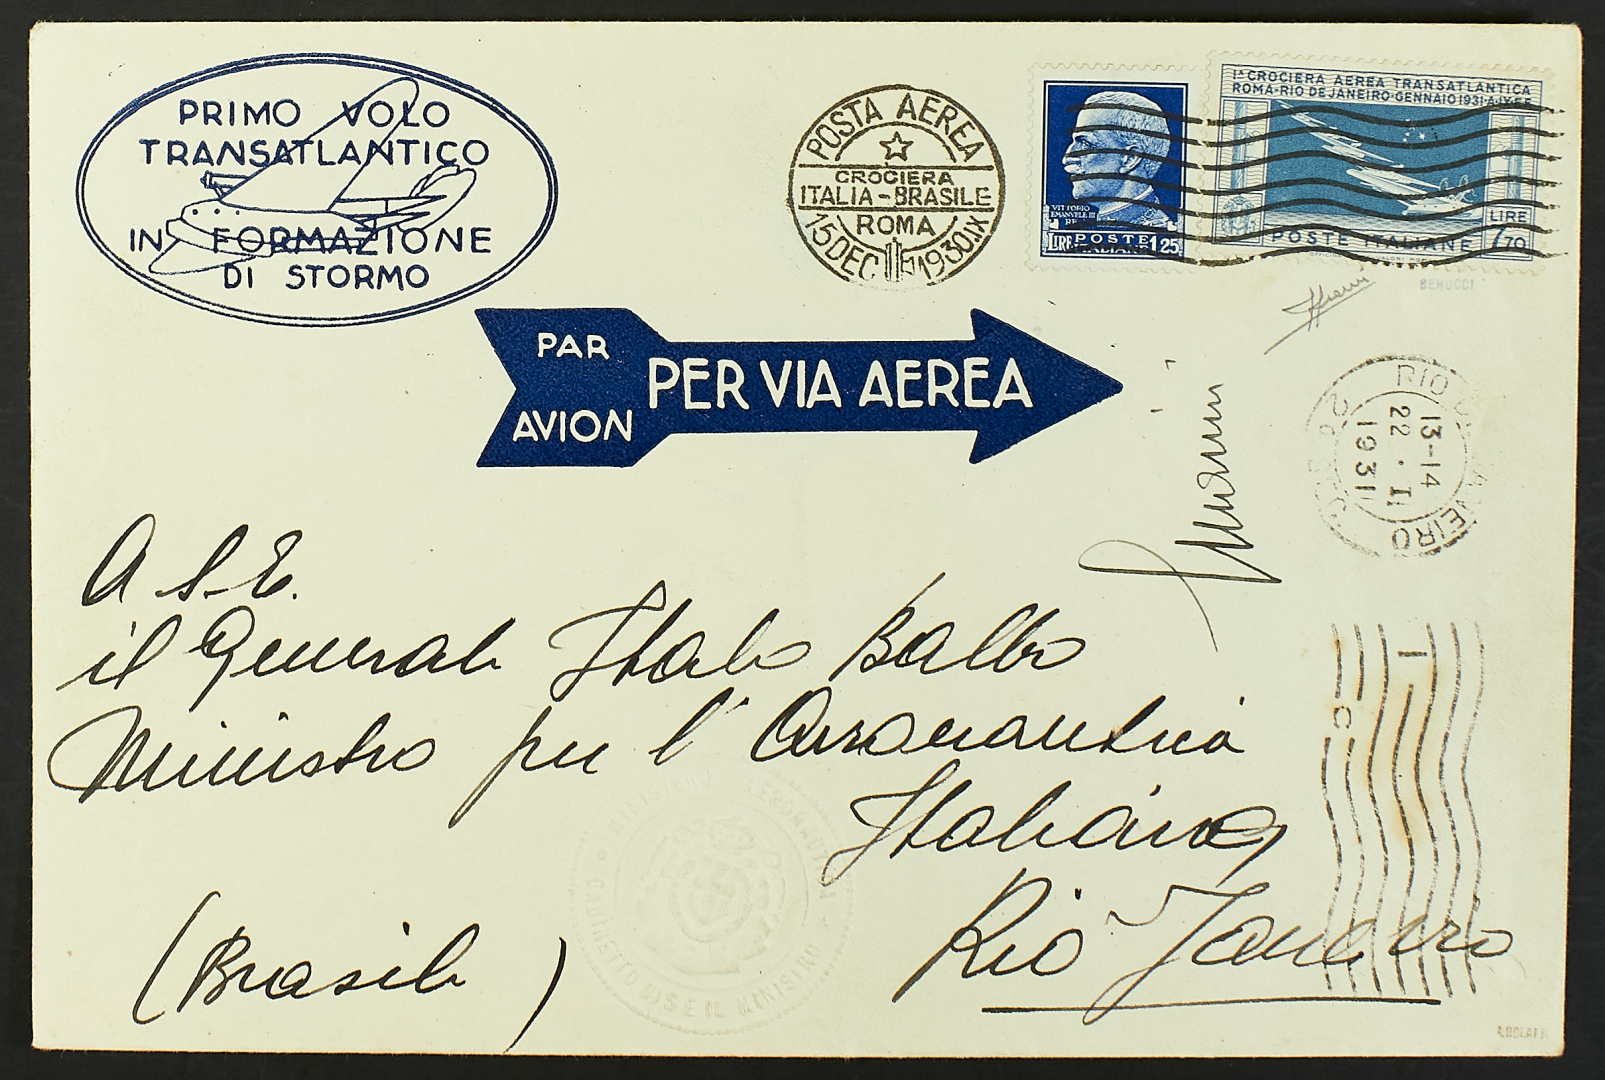 PRIMO VOLO
TRANSATLANTICO
IN FORMAZIONE
DI STORMO
POSTA AEREA
CROCIERA
ITALIA-BRASILE
ROMA
15 DEC 1930.IX
VITTORIO
EMANUELE III
RE
LIRE POSTE 1,25
ITALIANE
Iª CROCIERA AEREA TRANSATLANTICA
ROMA·RIO DE JANEIRO·GENNAIO 1931·A.IX·E.F.
LIRE
7,70
POSTE ITALIANE
BENUCCI
PAR
AVION
PER VIA AEREA
RIO DE JANEIRO
13-14
22.II
1931
A S.E.
il Generale Italo Balbo
Ministro per l'Aeronautica
Italiana
Rio Janeiro
(Brasile)
MINISTERO AERONAUTICA
GABINETTO DI S.E. IL MINISTRO
A.BOLAFFI